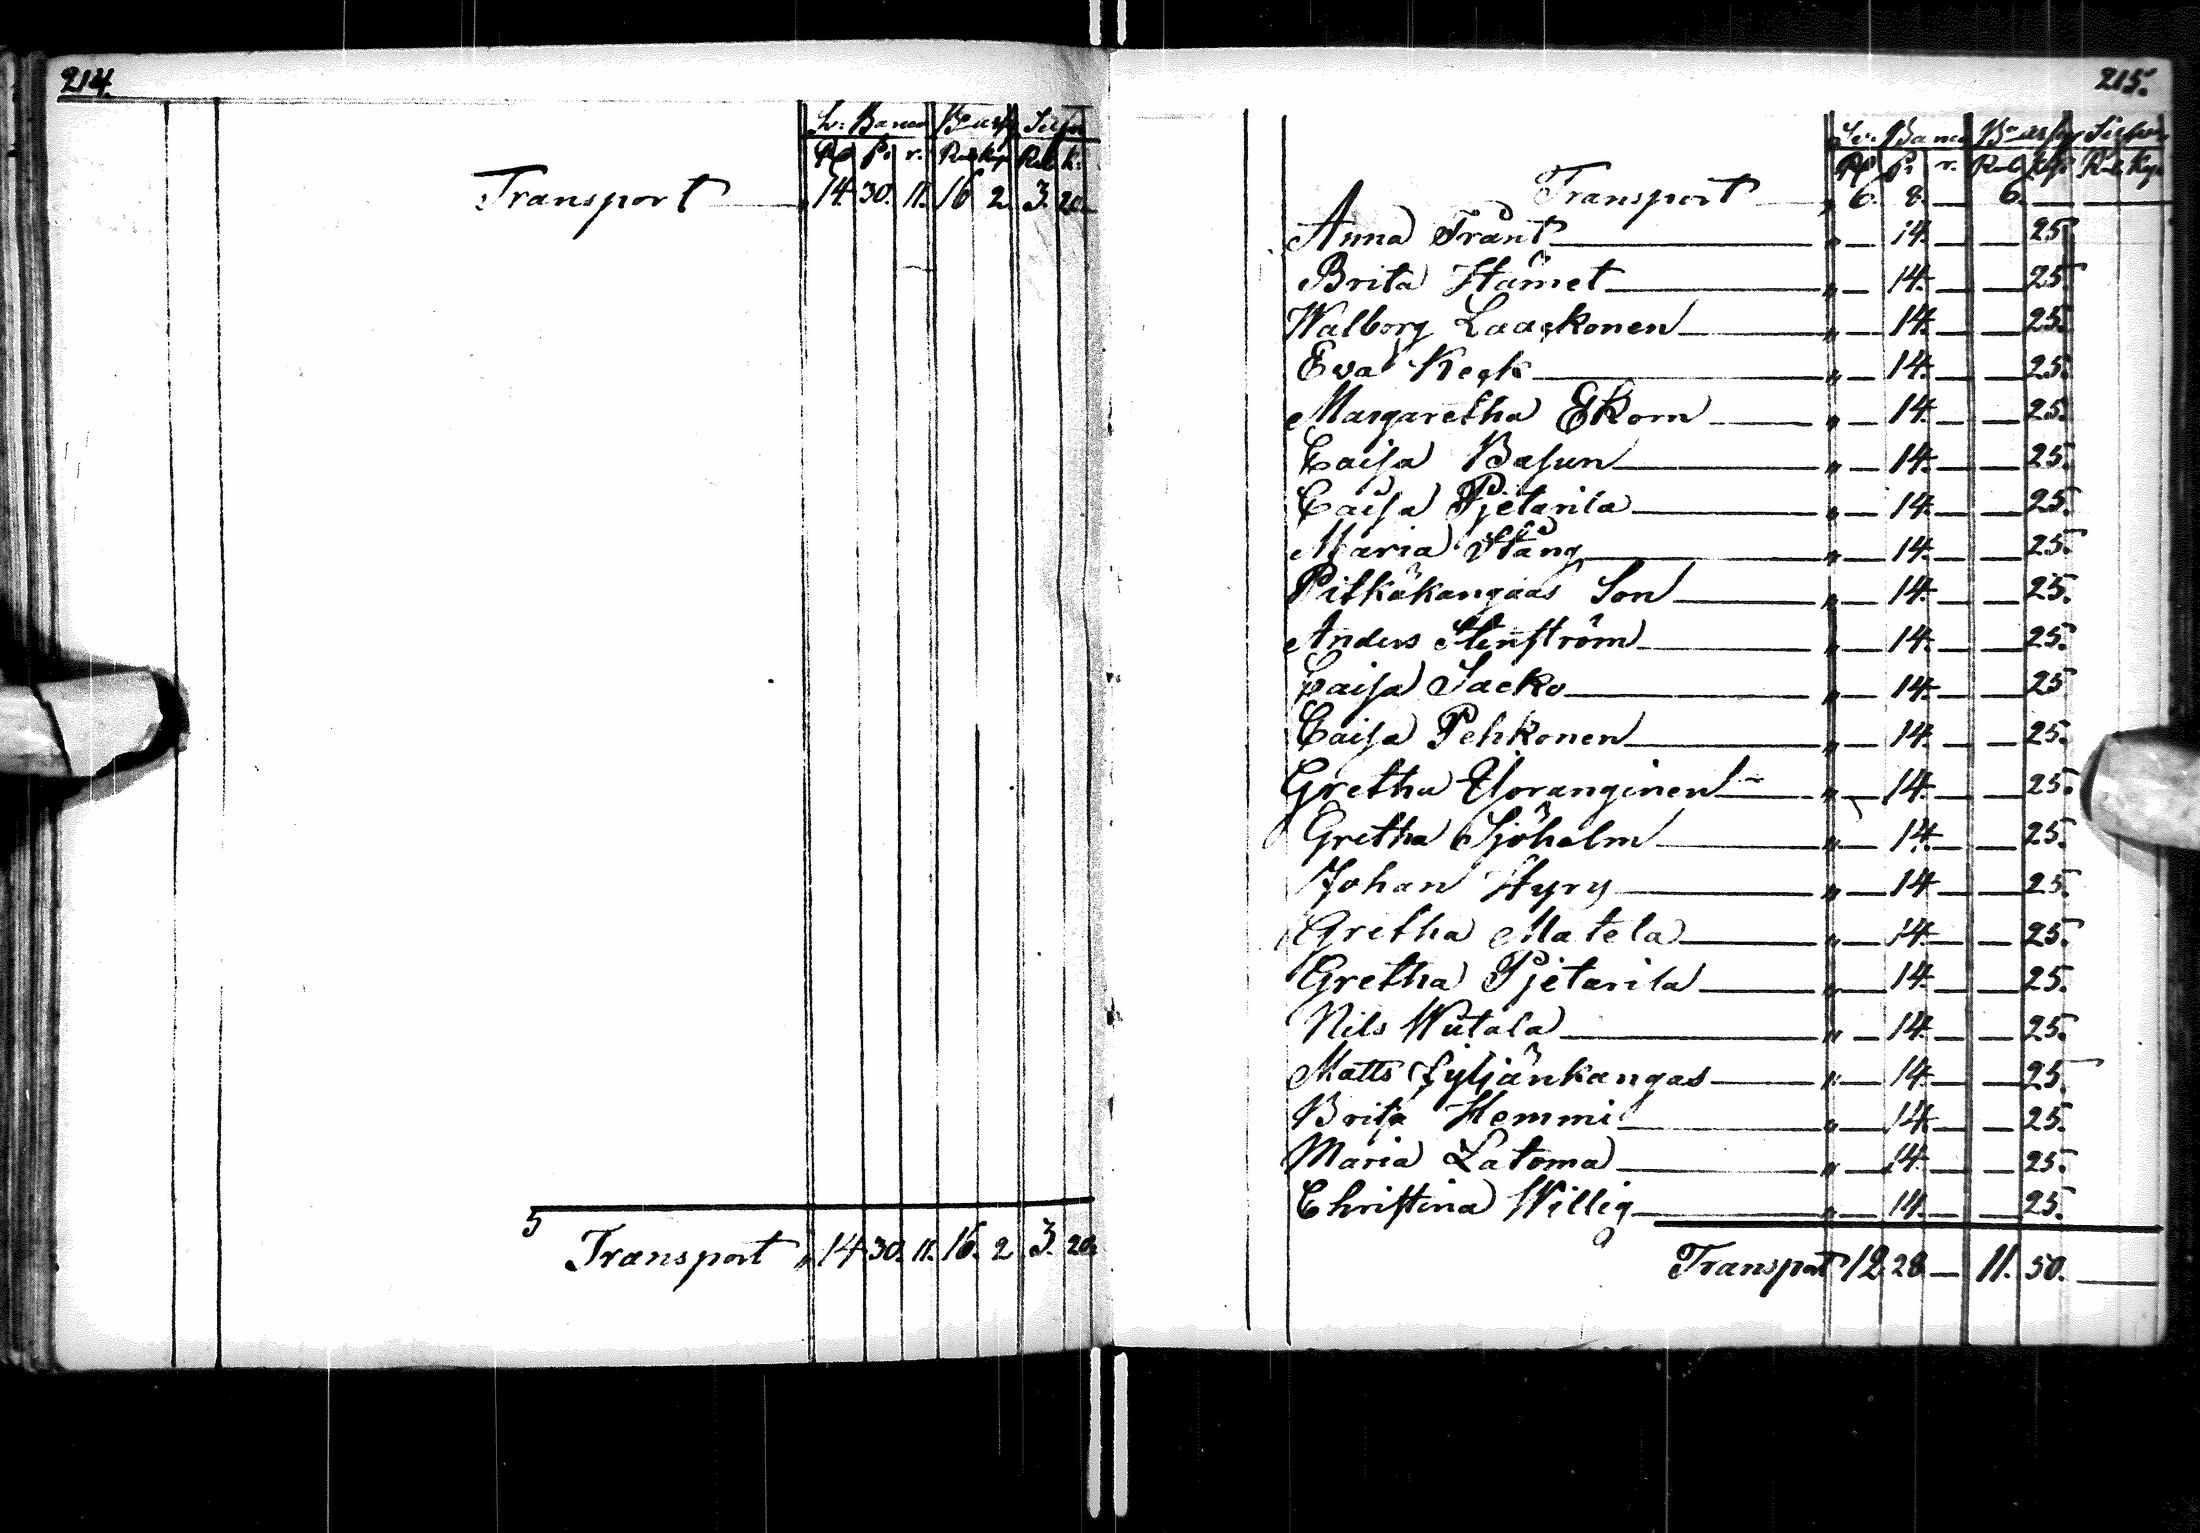 214.
Sv: Banco B: assg Silfr
Rd s. r. Rub. Kop Rub. k:
Transport „ 14 30. 11. 16 2 3. 20.
5
Transport „ 14 30. 11. 16. 2 3. 20.
215.
Sv: Banco B: assg Silfver
Rd s. r. Rub. Kop Rub. Kop
Transport „ 6. 8. — 6. — —
Anna Frant „ — 14. — — 25.
Brita Hämet „ — 14. — — 25.
Walborg Laackonen „ — 14. — — 25.
Eva Keck „ — 14. — — 25.
Margaretha Ekorn „ — 14. — — 25.
Caisa Basun „ — 14. — — 25.
Caisa Pjetarila „ — 14. — — 25.
Maria Stång „ — 14. — — 25.
Pitkäkangaas Son „ — 14. — — 25.
Anders Stenström „ — 14. — — 25.
Caisa Sacko „ — 14. — — 25
Caisa Pehkonen „ — 14. — — 25.
Gretha Uoranginen „ — 14. — — 25.
Gretha Sjöholm „ — 14. — — 25.
Johan Hyry „ — 14 — — 25.
Gretha Matela „ — 14. — — 25.
Gretha Pjetarila „ — 14. — — 25.
Nils Wutala „ — 14. — — 25.
Matts Syljänkangas „ — 14. — — 25.
Brita Hemmi „ — 14. — — 25.
Maria Latoma „ — 14. — — 25.
Christina Willig „ — 14. — — 25.
Transport 12 28 — 11. 50. —